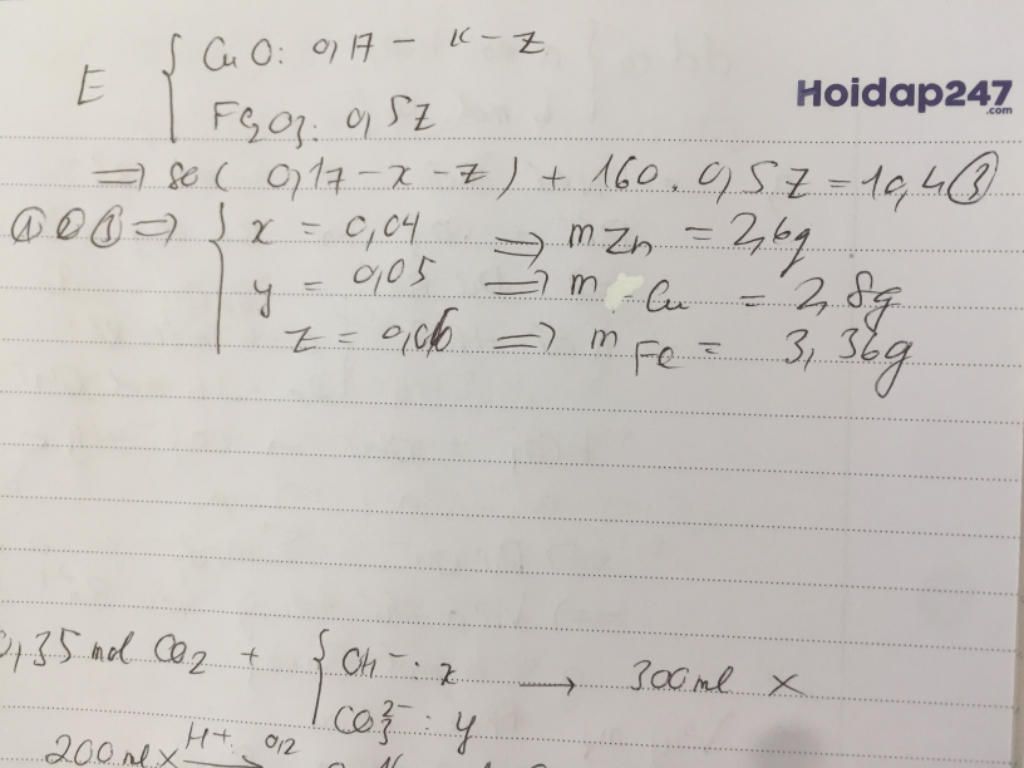 E { CuO: 0,17 - x - z
Fe2O3: 0,5z
Hoidap247
.com
=> 80( 0,17 - x - z ) + 160. 0,5 z = 10,4 ③
① ② ③ => { x = 0,04 => m Zn = 2,6g
y = 0,05 => m Cu = 2,8g
z = 0,06 => m Fe = 3,36g
0,35 mol CO2 + { OH⁻: x → 300ml X
CO3²⁻: y
200ml X H+: 0,12